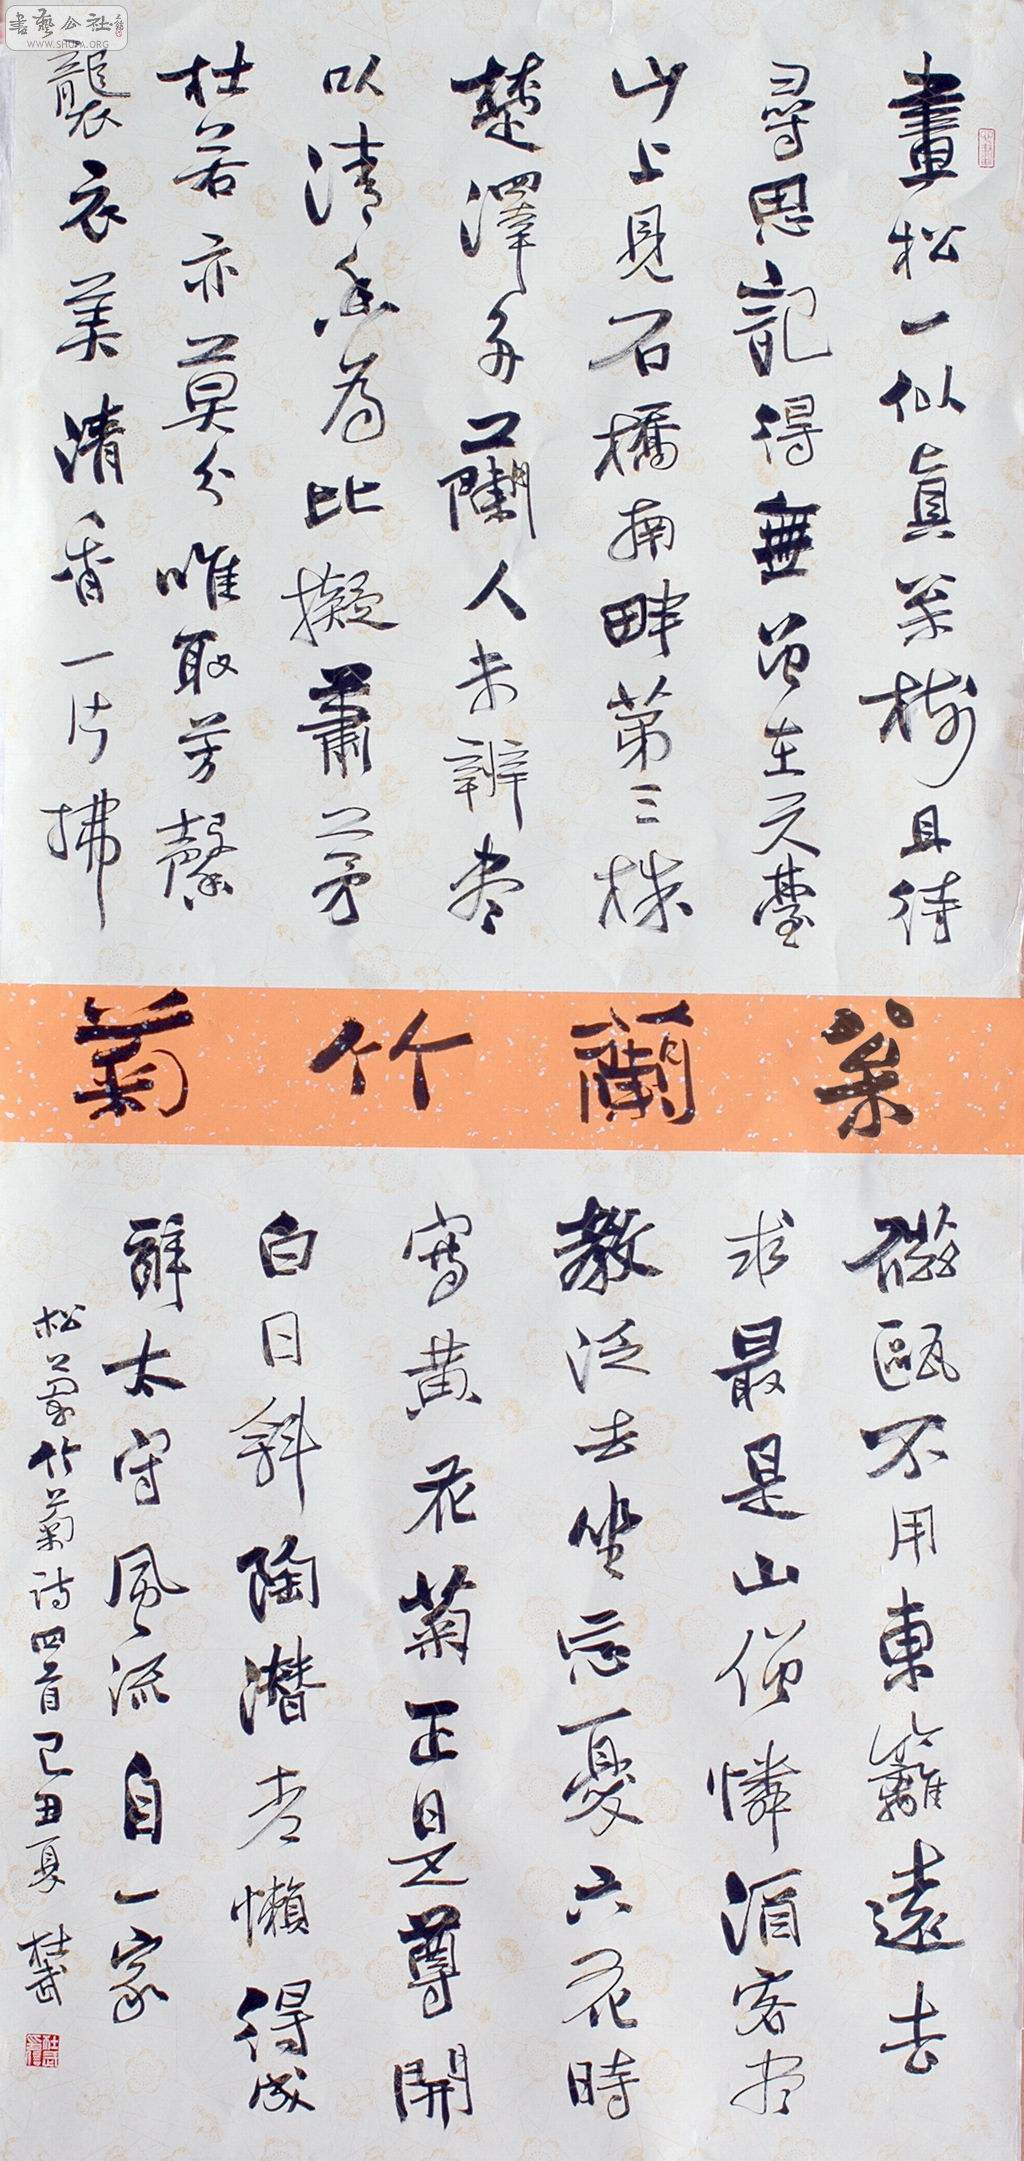 書藝公社
WWW.SHUFA.ORG
畫松一似真枩樹且待
尋思記得無曾在天臺
山上見石橋南畔第三株
楚澤多蘭人未辨盡
以清香為比擬蕭茅
杜若亦莫分唯取芳馨
襲衣美清香一片拂
枩蘭竹菊
磁甌不用東籬遠去
求最是山僧憐酒客尽
教泛去坐忘憂六花時
寫黃花菊正是尊開
白日斜陶潛老懶得成
辭太守風流自一家
松蘭竹菊詩四首己丑夏 杜武